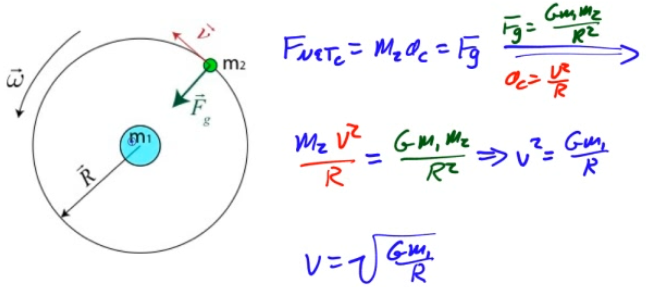 ω⃗
v⃗
m₂
F⃗g
m₁
R⃗
F_NETc = m₂a_c = F_g
F_g = Gm₁m₂/R²
a_c = v²/R
m₂v²/R = Gm₁m₂/R² ⇒ v² = Gm₁/R
v = √(Gm₁/R)